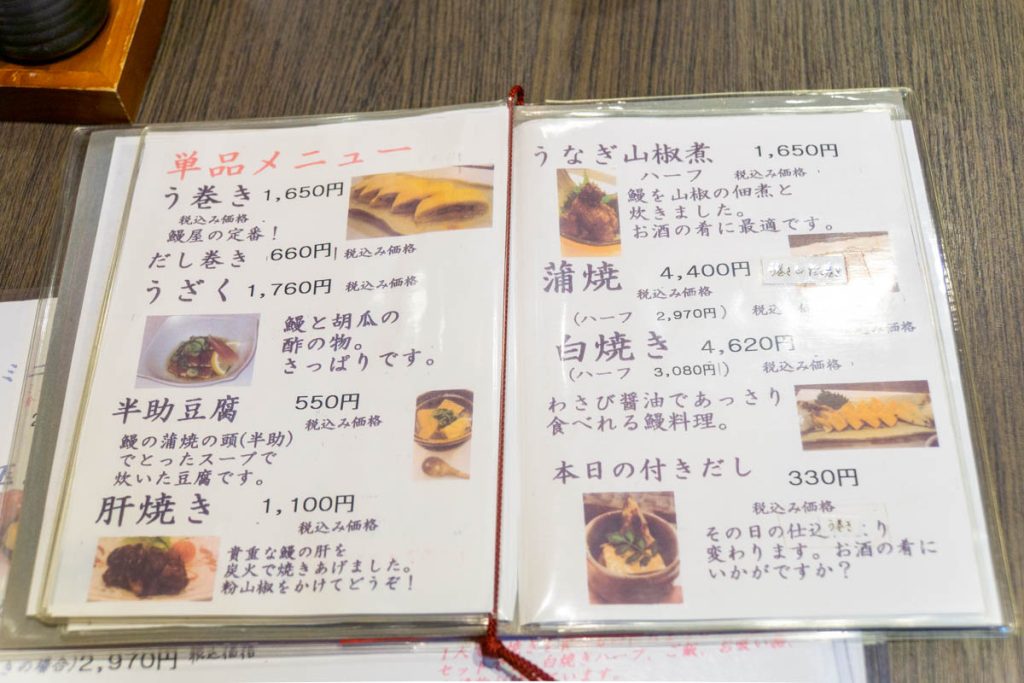 単品メニュー
う巻き 1,650円
税込み価格
鰻屋の定番!
だし巻き 660円 税込み価格
うざく 1,760円 税込み価格
鰻と胡瓜の
酢の物。
さっぱりです。
半助豆腐 550円
税込み価格
鰻の蒲焼の頭(半助)
でとったスープで
炊いた豆腐です。
肝焼き 1,100円
税込み価格
貴重な鰻の肝を
炭火で焼きあげました。
粉山椒をかけてどうぞ!
うなぎ山椒煮 1,650円
ハーフ 税込み価格
鰻を山椒の佃煮と
炊きました。
お酒の肴に最適です。
蒲焼 4,400円
税込み価格
(ハーフ 2,970円) 税込
税込み価格
白焼き 4,620円
(ハーフ 3,080円) 税込み価格
わさび醤油であっさり
食べれる鰻料理。
本日の付きだし 330円
税込み価格
その日の仕込 より
変わります。お酒の肴に
いかがですか?
2,970円 税込み価格